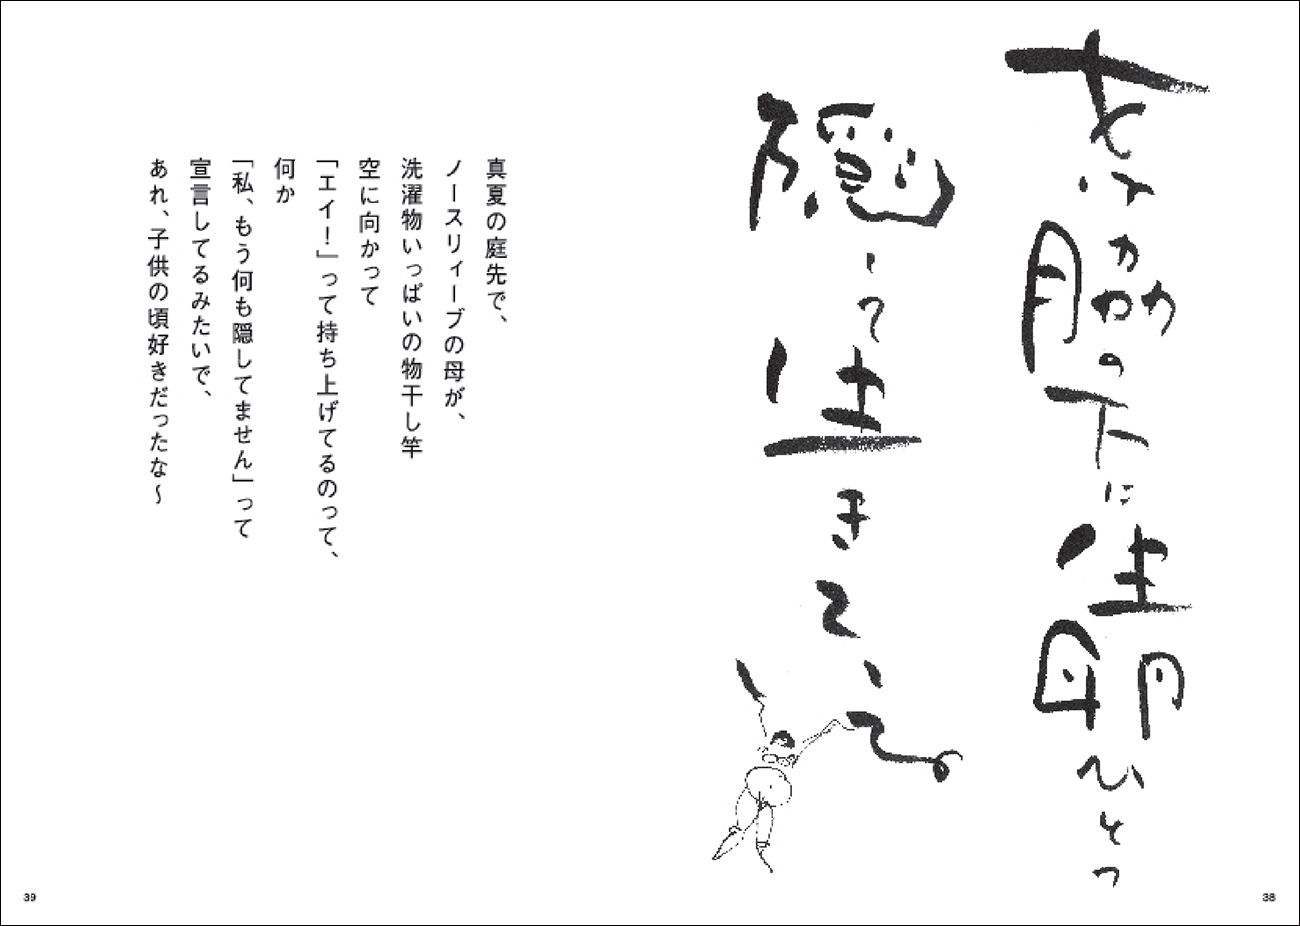 女は脇の下に生卵ひとつ
隠して生きている
真夏の庭先で、
ノースリィーブの母が、
洗濯物いっぱいの物干し竿
空に向かって
「エイ！」って持ち上げてるのって、
何か
「私、もう何も隠してません」って
宣言してるみたいで、
あれ、子供の頃好きだったな～
39
38